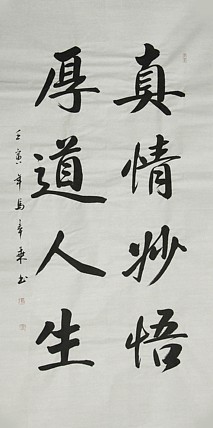 真情妙悟
厚道人生
壬寅年马幸乘书